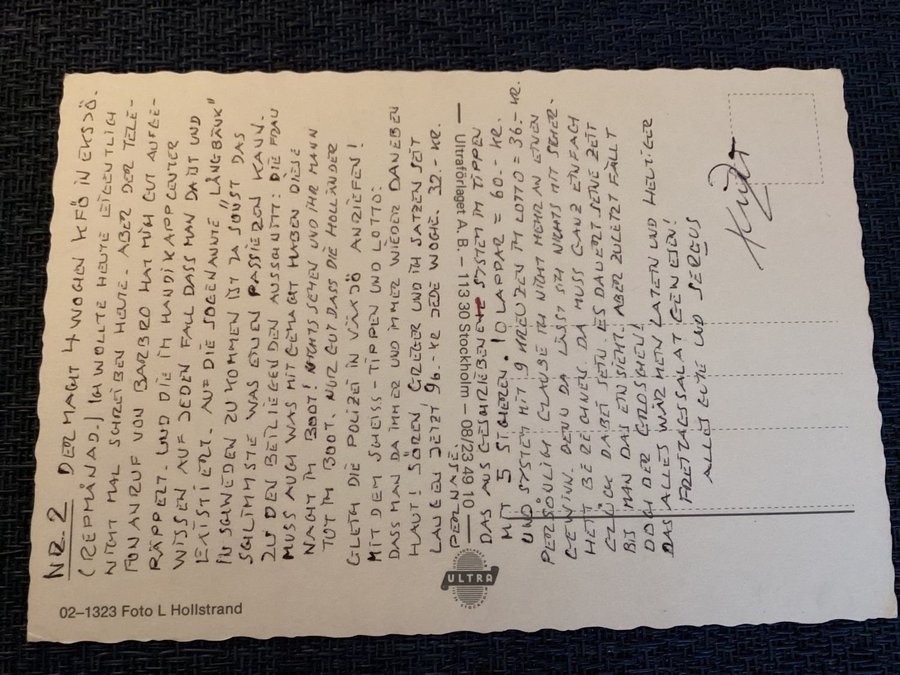 NR. 2 DER MACHT 4 WOCHEN KFÖ IN EKSJÖ.
(REPMÅNAD.) ICH WOLLTE HEUTE EIGENTLICH
NICHT MAL SCHREIBEN HEUTE - ABER DER TELE-
FONANRUF VON BARBRO HAT MICH GUT AUFGE-
RÄPPELT. UND DIE IM HANDIKAPPCENTER
WISSEN AUF JEDEN FALL DASS MAN DA IST UND
EXISTIERT. AUF DIE SOGENANNTE "LÅNGBÄNK"
IN SCHWEDEN ZU KOMMEN IST JA SONST DAS
SCHLIMMSTE WAS EINEN PASSIEREN KANN.
ZU DEN BEILIEGENDEN AUSSCHNITT: DIE FRAU
MUSS AUCH WAS MIT GEMACHT HABEN DIESE
NACHT IM BOOT! NICHTS SEHEN UND IHR MANN
TOT IM BOOT. NUR GUT DASS DIE HOLLÄNDER
GLEICH DIE POLIZEI IN VÄXJÖ ANRIEFEN!
MIT DEM SCHEISS-TIPPEN UND LOTTO:
DASS MAN DA IMMER UND IMMER WIEDER DANEBEN
HAUT! SÖREN GREGER UND ICH SATZEN SEIT
LANGEN JETZT 96.-KR JEDE WOCHE. 32.-KR.
PER NASE.
DAS AUSGESCHRIEBENE SYSTEM IM TIPPEN
MIT 5 SICHEREN. 10 LAPPAR = 60.-KR.
UND SYSTEM MIT 9 KREUZEN IM LOTTO = 36.-KR.
PERSÖNLICH GLAUBE ICH NICHT MEHR AN EINEN
GEWINN. DENN DA LÄSST SICH NICHTS MIT SICHER-
HEIT BERECHNEN DA MUSS GANZ EINFACH
GLÜCK DABEI SEIN. ES DAUERT SEINE ZEIT
BIS MAN DAS EINSIEHT. ABER ZULETZT FÄLLT
DOCH DER GROSCHEN!
DAS ALLES WÄR MEIN LATEIN UND HEUTIGER
FREITAGSSALAT GEWESEN!
ALLES GUTE UND SERVUS
Kurt
Ultraförlaget A.B. – 113 30 Stockholm – 08/23 49 10
ULTRA
02–1323 Foto L Hollstrand